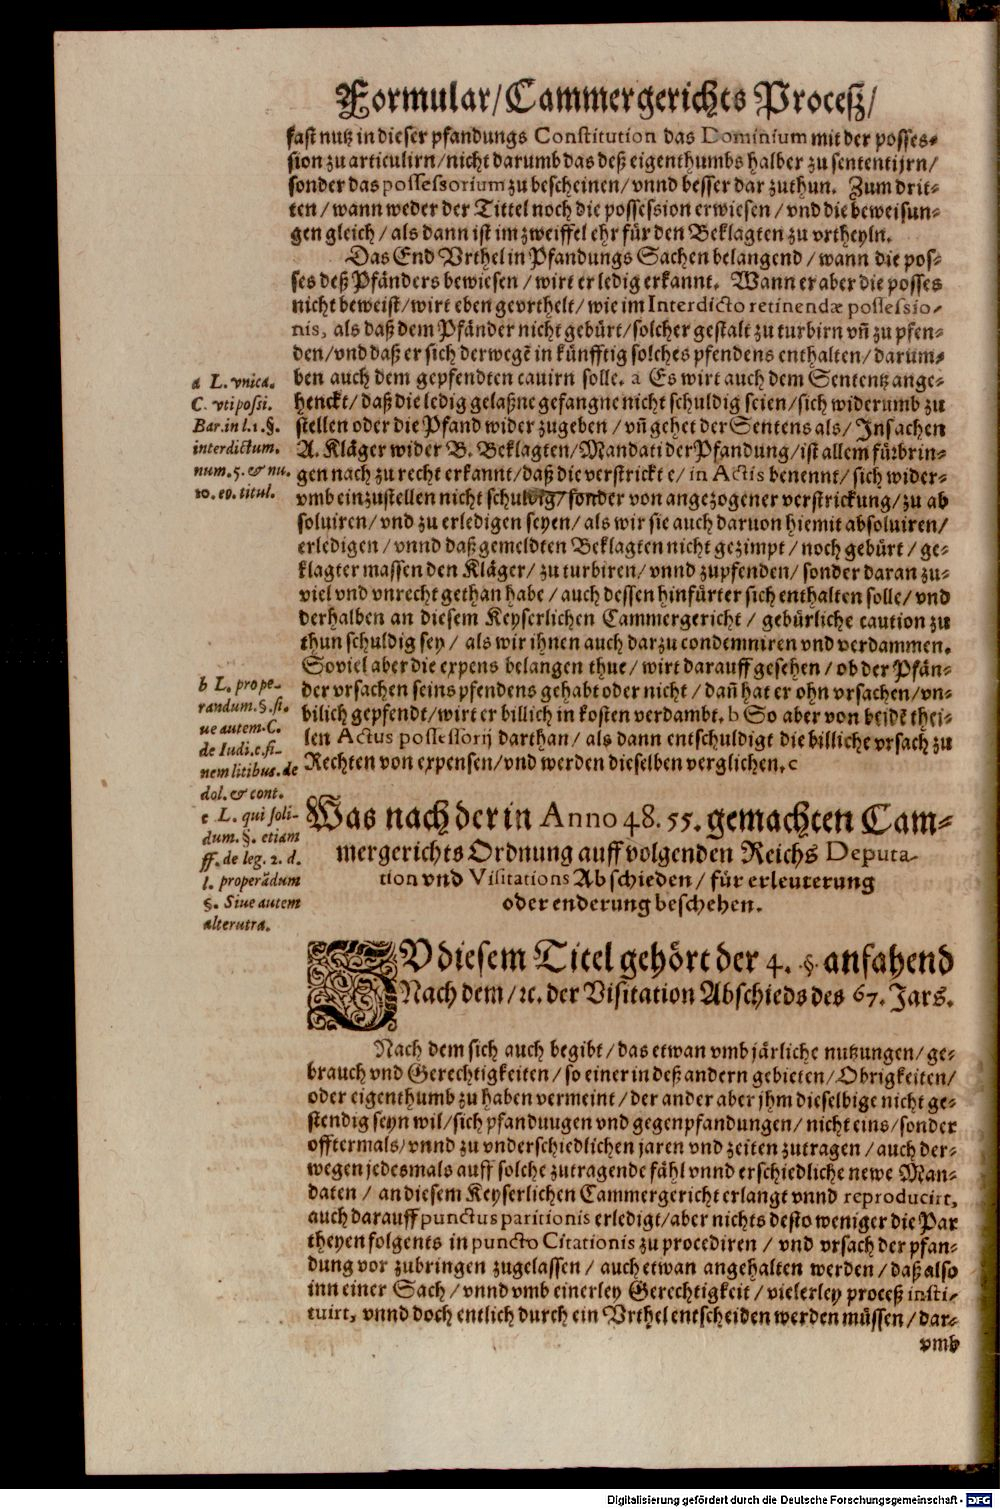 Formular/Cammergerichts Proceß/
fast nutz in dieser pfandungs Constitution das Dominium mit der posses-
sion zu articulirn/nicht darumb das deß eigenthumbs halber zu sententijrn/
sonder das possessorium zu bescheinen/vnnd besser dar zuthun. Zum drit-
ten/wann weder der Tittel noch die possession erwiesen/vnd die beweisun-
gen gleich/als dann ist im zweiffel ehr für den Beklagten zu vrtheyln.
Das End Vrthel in Pfandungs Sachen belangend/wann die pos-
ses deß Pfänders bewiesen/wirt er ledig erkannt. Wann er aber die posses
nicht beweist/wirt eben gevrthelt/wie im Interdicto retinendæ possessio-
nis, als daß dem Pfänder nicht gebürt/solcher gestalt zu turbirn vñ zu pfen-
den/vnd daß er sich derwegē in künfftig solches pfendens enthalten/darum-
ben auch dem gepfendten cauirn solle. a Es wirt auch dem Sententz ange-
henckt/daß die ledig gelaßne gefangne nicht schuldig seien/sich widerumb zu
stellen oder die Pfand wider zugeben/vñ gehet der Sentens als/In sachen
A. Kläger wider B. Beklagten/Mandati der Pfandung/ist allem fürbrin-
gen nach zu recht erkannt/daß die verstrickte/in Actis benennt/sich wider-
vmb einzustellen nicht schuldig/sonder von angezogener verstrickung/zu ab
soluiren/vnd zu erledigen seyen/als wir sie auch daruon hiemit absoluiren/
erledigen/vnnd daß gemeldten Beklagten nicht gezimpt/noch gebürt/ge-
klagter massen den Kläger/zu turbiren/vnnd zupfenden/sonder daran zu-
viel vnd vnrecht gethan habe/auch dessen hinfürter sich enthalten solle/vnd
derhalben an diesem Keyserlichen Cammergericht/gebürliche caution zu
thun schuldig sey/als wir ihnen auch darzu condemniren vnd verdammen.
Soviel aber die expens belangen thue/wirt darauff gesehen/ob der Pfän-
der vrsachen seins pfendens gehabt oder nicht/dañ hat er ohn vrsachen/vn-
bilich gepfendt/wirt er billich in kosten verdambt. b So aber von beidē thei-
len Actus possessorij darthan/als dann entschuldigt die billiche vrsach zu
Rechten von expensen/vnd werden dieselben verglichen. c
a L. vnica.
C. vti possi.
Bar. in l. 1. §.
interdictum.
num. 5. & nu.
10. eo. titul.
b L. prope-
randum. §. si-
ue autem. C.
de Iudi. c. fi-
nem litibus. de
dol. & cont.
c L. qui soli-
dum. §. etiam
ff. de leg. 2. d.
l. properādum
§. Siue autem
alterutra.
Was nach der in Anno 48. 55. gemachten Cam-
mergerichts Ordnung auff volgenden Reichs Deputa-
tion vnd Visitations Abschieden/für erleuterung
oder enderung beschehen.
ZV diesem Titel gehört der 4. § anfahend
Nach dem/ꝛc. der Visitation Abschieds des 67. Jars.
Nach dem sich auch begibt/das etwan vmb järliche nutzungen/ge-
brauch vnd Gerechtigkeiten/so einer in deß andern gebieten/Obrigkeiten/
oder eigenthumb zu haben vermeint/der ander aber jhm dieselbige nicht ge-
stendig seyn wil/sich pfanduugen vnd gegenpfandungen/nicht eins/sonder
offtermals/vnnd zu vnderschiedlichen jaren vnd zeiten zutragen/auch der-
wegen jedesmals auff solche zutragende fähl vnnd erschiedliche newe Man-
daten/an diesem Keyserlichen Cammergericht erlangt vnnd reproducirt,
auch darauff punctus paritionis erledigt/aber nichts desto weniger die Par
theyen folgents in puncto Citationis zu procediren/vnd vrsach der pfan-
dung vor zubringen zugelassen/auch etwan angehalten werden/daß also
inn einer Sach/vnnd vmb einerley Gerechtigkeit/vielerley proceß insti-
tuirt, vnnd doch entlich durch ein Vrthel entscheiden werden müssen/dar-
vmb
Digitalisierung gefördert durch die Deutsche Forschungsgemeinschaft - DFG